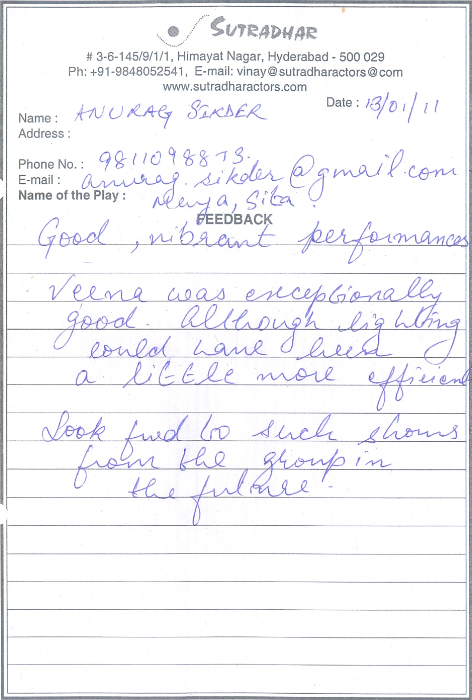 SUTRADHAR
# 3-6-145/9/1/1, Himayat Nagar, Hyderabad - 500 029
Ph: +91-9848052541, E-mail: vinay@sutradharactors@com
www.sutradharactors.com
Date : 13/01/11
Name : ANURAG SIKDER
Address :
Phone No. : 9811098873.
E-mail : anurag.sikder@gmail.com
Name of the Play : Menya, Sita !
FEEDBACK
Good, vibrant performances
Veena was exceptionally
good. Although lighting
could have been
a little more efficient
Look fwd to such shows
from the group in
the future.